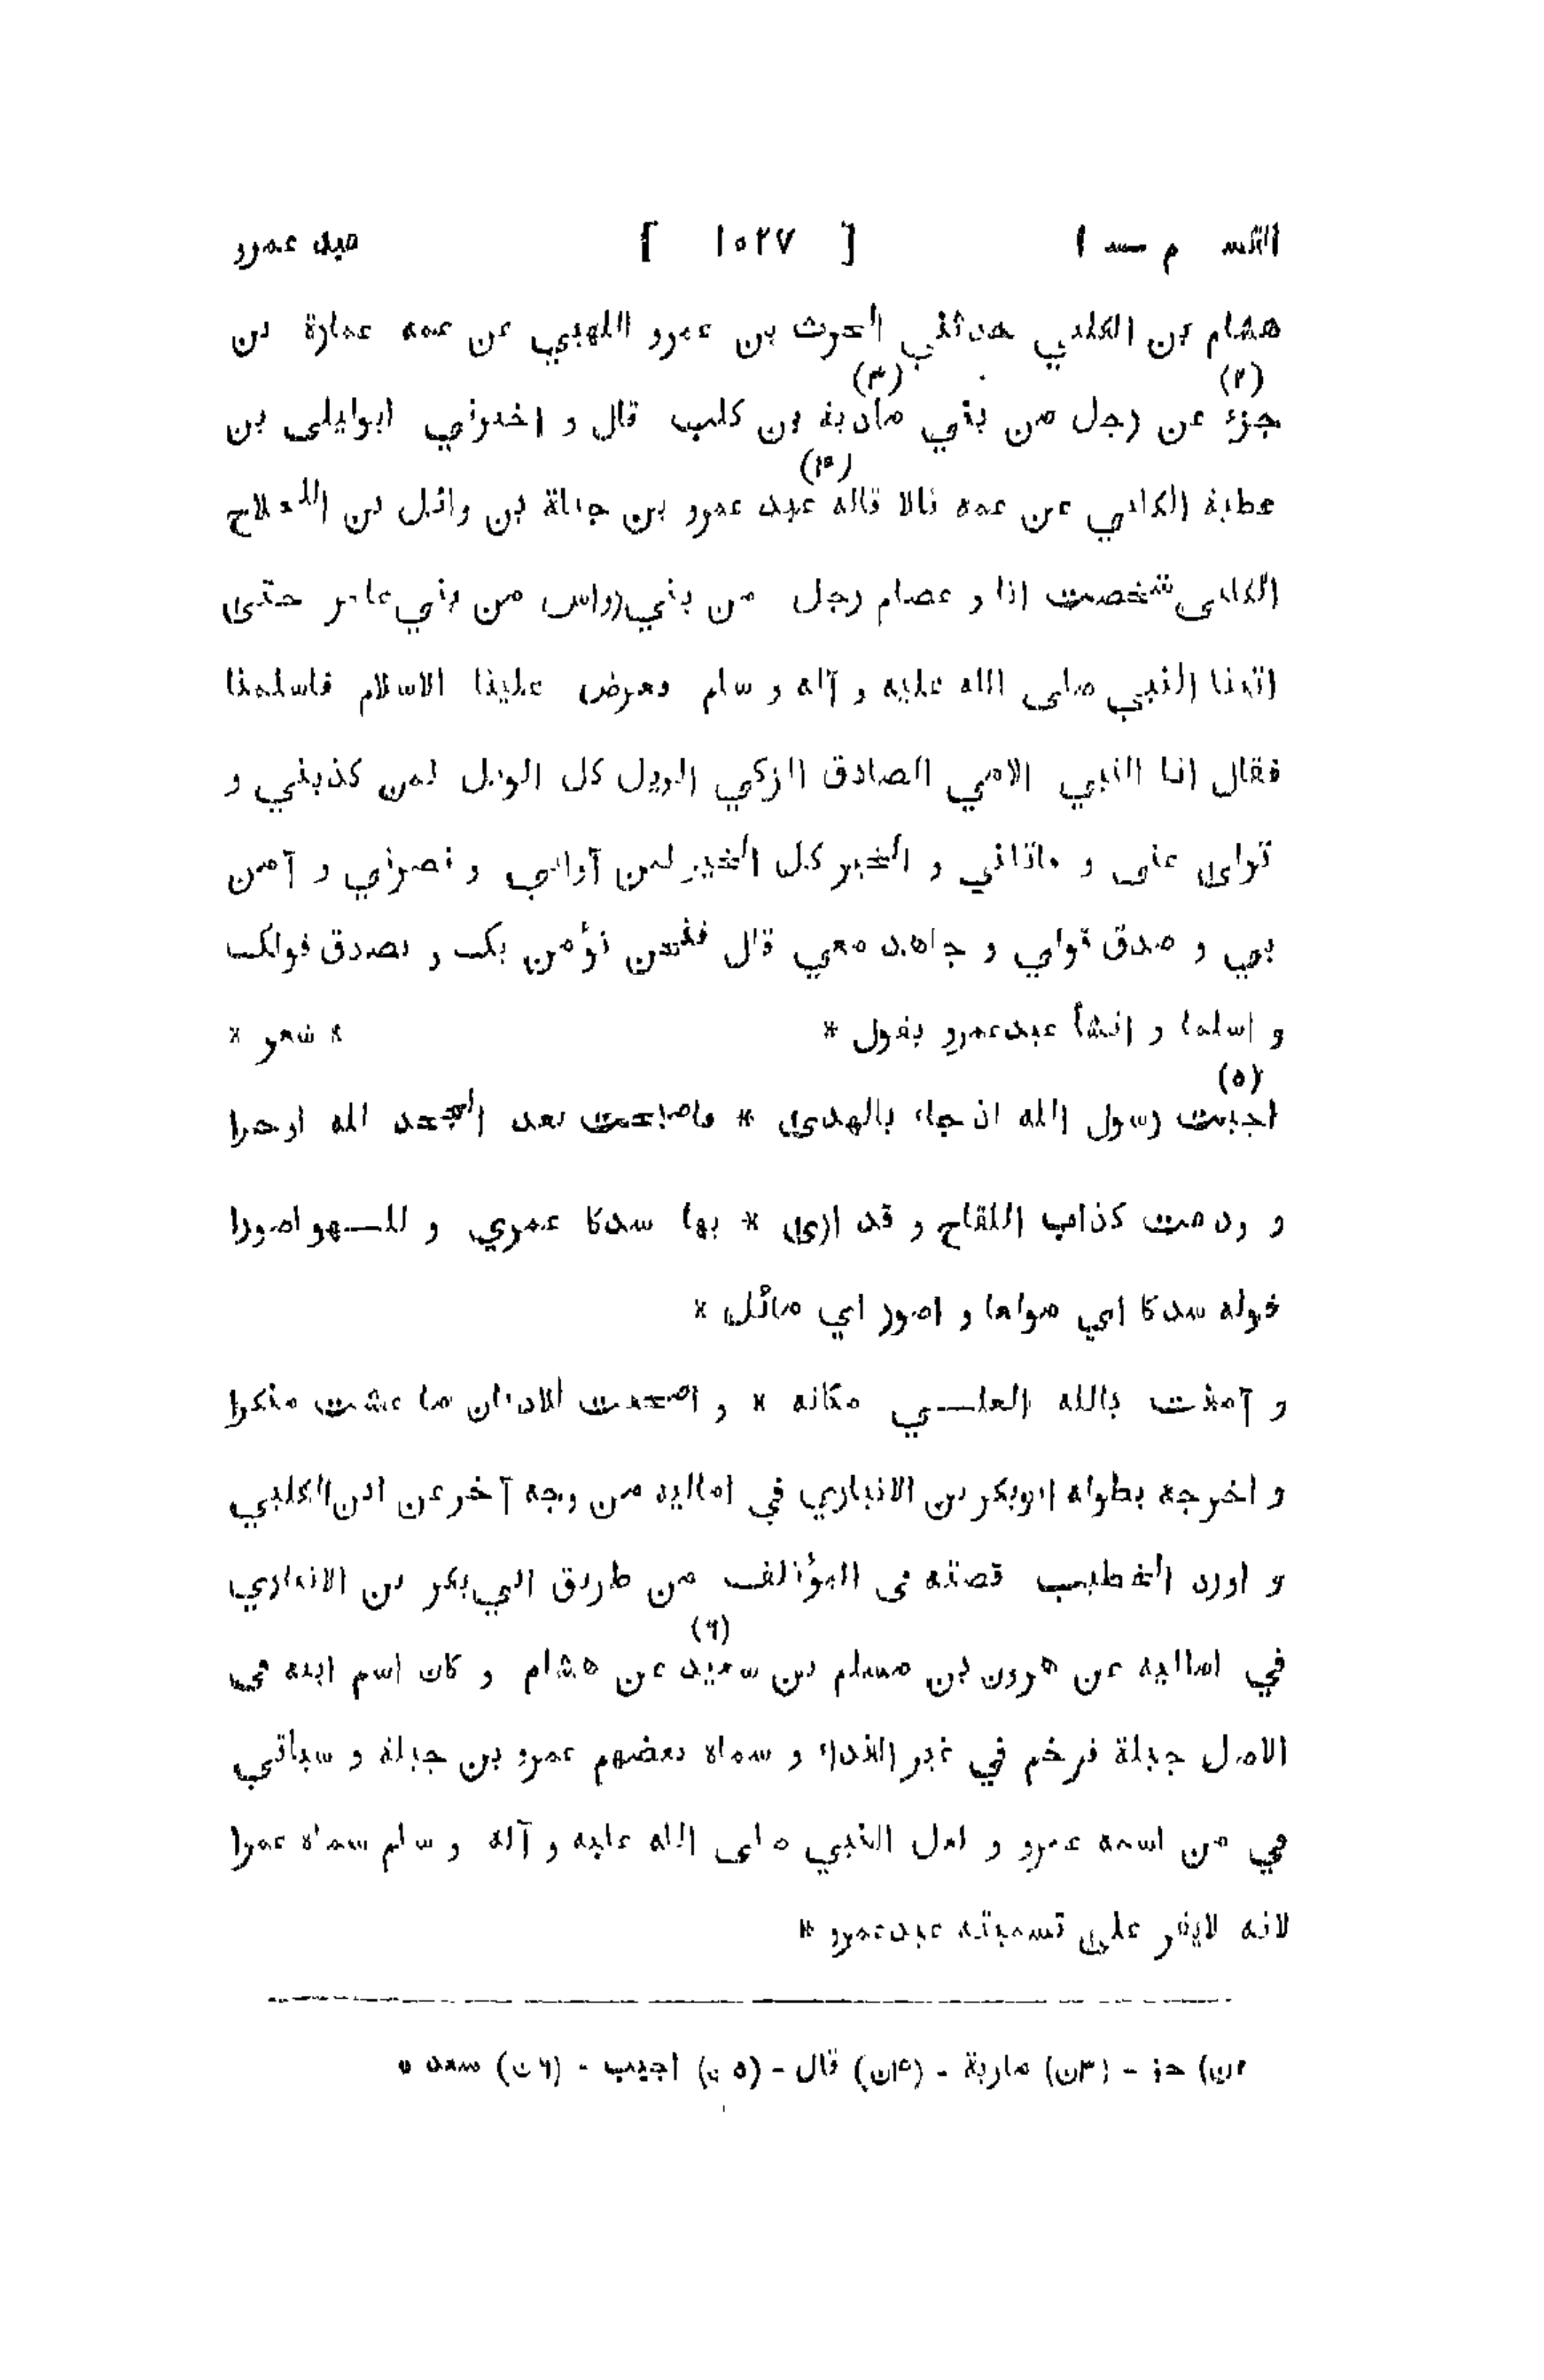 القسم ا [ ١٥٢٧ ] عبد عمرو
هشام بن الكلبي حدثني الحرث بن عمرو اللهبي عن عمه عمارة بن
(٢) (٣)
جزء عن رجل من بني مادبة بن كلب قال و اخبرني ابوليلى بن
(۴)
عطية الكلبي عن عمه قالا قاله عبد عمرو بن جبلة بن وائل بن اللجلاح
الكلبى شخصت انا و عصام رجل من بني رواس من بني عامر حتى
اتينا النبي صلى الله عليه و آله و سلم فعرض علينا الاسلام فاسلمنا
فقال انا النبي الامي الصادق الزكي الويل كل الويل لمن كذبني و
تولى عنى و قاتلني و الخير كل الخير لمن آواني و نصرني و آمن
بي و صدق قولي و جاهد معي قال فنحن نؤمن بك و نصدق قولك
و اسلما و انشأ عبدعمرو يقول * * شعر *
(٥)
اجبت رسول الله اذ جاء بالهدى * فاصبحت بعد الجحد لله اوجرا
و ودعت كذاب اللقاح و قد ارى * بها سدكا عمري و للهو اصورا
قوله سدكا اي مولعا و اصور اي مائل *
و آمنت بالله العلي مكانه * و اصبحت للاديان ما عشت منكرا
و اخرجه بطوله ابوبكر بن الانباري في اماليه من وجه آخر عن ابن الكلبي
و اورد الخطيب قصته فى المؤتلف من طريق ابي بكر بن الانباري
(٦)
في اماليه عن هرون بن مسلم بن سعيد عن هشام و كان اسم ابيه في
الاصل جبلة فرخم في غير النداء و سماه بعضهم عمرو بن جبلة و سيأتي
في من اسمه عمرو و لعل النبي صلى الله عليه و آله و سلم سماه عمرا
لانه لايقر على تسميته عبدعمرو *
(٢ن) حز - (٣ن) مارية - (۴ن) قال - (٥ن) اجيب - (٦ن) سعد *